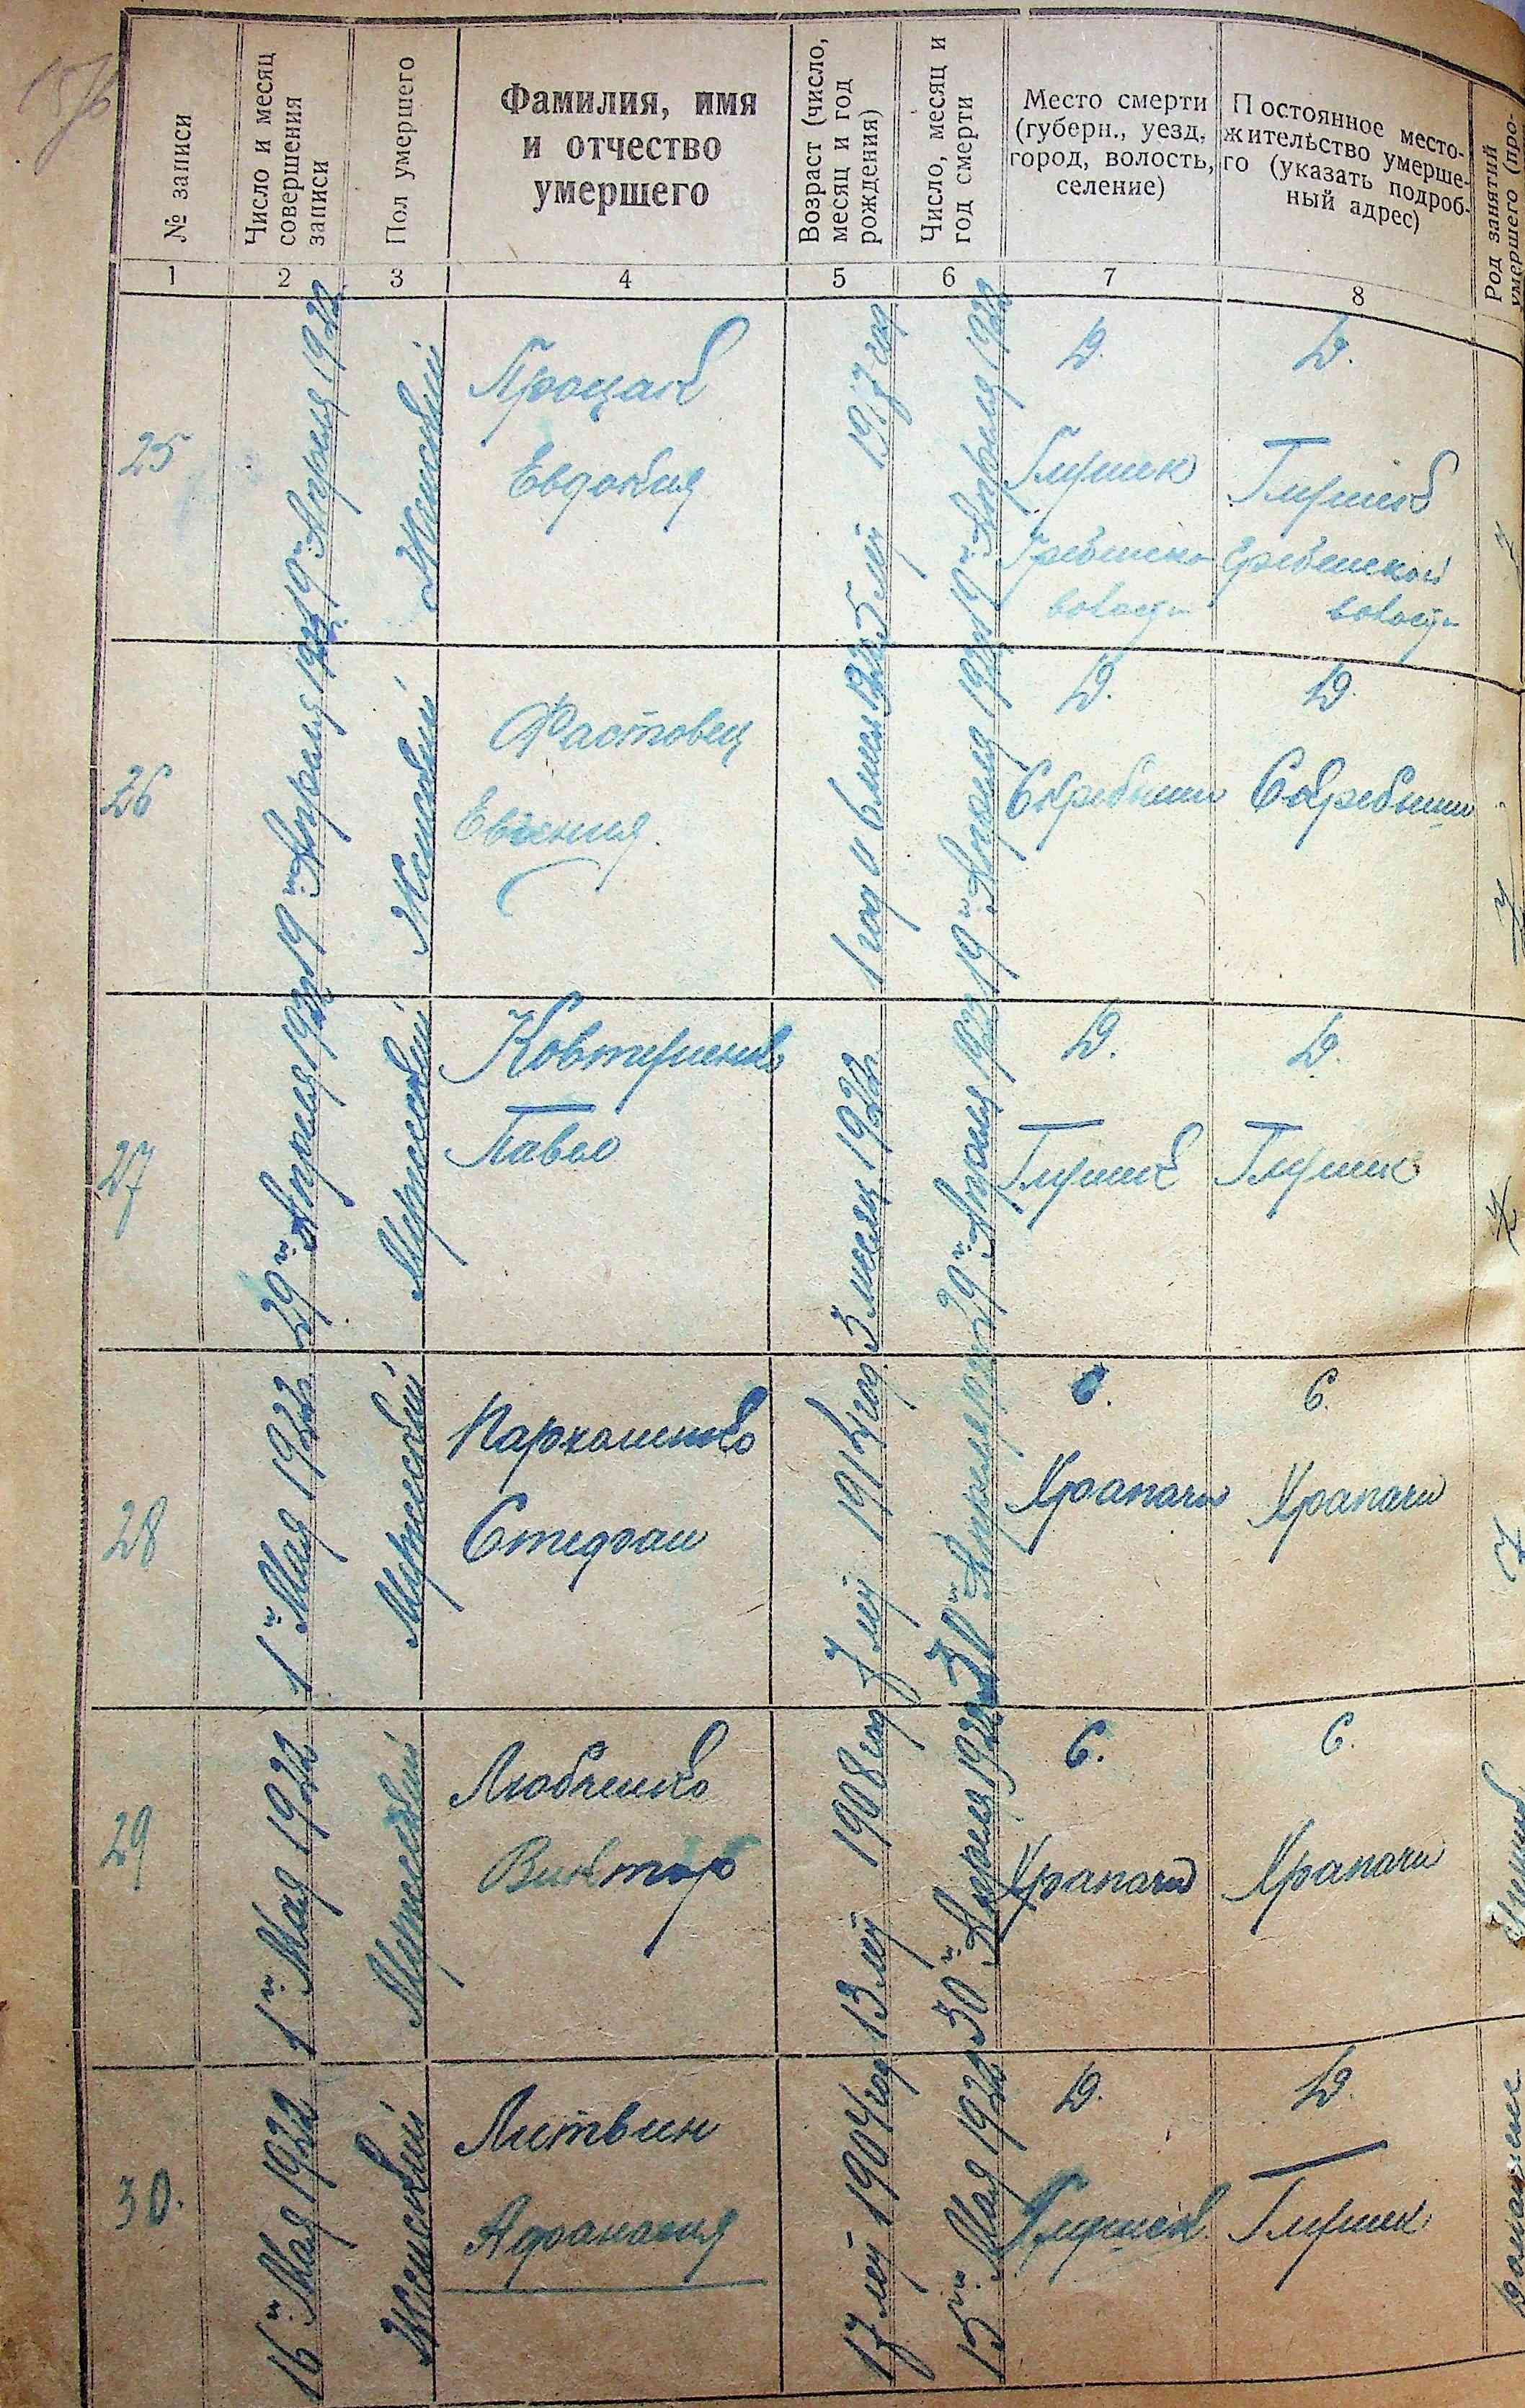 № записи
Число и месяц
совершения
записи
Пол умершего
Фамилия, имя
и отчество
умершего
Возраст (число,
месяц и год
рождения)
Число, месяц и
год смерти
Место смерти
(губерн., уезд,
город, волость,
селение)
Постоянное место-
жительство умерше-
го (указать подроб-
ный адрес)
Род занятий
умершего (про-
1
2
3
4
5
6
7
8
25
19й Апреля 1922
Женский
Процак
Евдокия
5 лет 1917 год
19й Апреля 1922
Д.
Глушк
волост
Д.
Глушк
Гребенской
волост
26
19й Апреля 1922
Женский
Фастовец
Евгения.
1 год и 6 мес
19й Апреля 1922
Д.
Д.
27
29й Апреля 1922
Мужеский
Павел
3 месец 1922
29й Апреля 1922
Д.
Глушк
Д.
Глушк
28
1й Мая 1922
Мужеский
Пархоменко
Стефан
7 лет
30й Апреля
С.
Храпачи
С.
Храпачи
29
1й Мая 1922
Мужеский
Любченко
Виктор
13 лет 1908 год
30й Апреля 1922
С.
Храпачи
С.
Храпачи
30.
16й Мая 1922
Женский
Литвин
Афанасия
17 лет 1904 год
15й Мая 1922
Д.
Глушек
Д.
Глушк